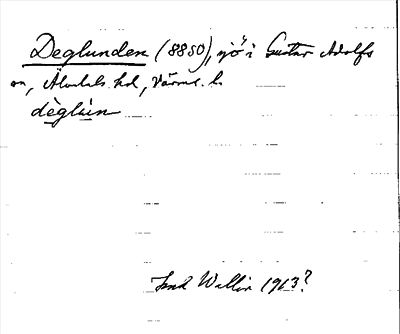 Deglunden (8850), sjö i Gustav Adolfs
sn, Älvdals hd, Värml. l.
dèglùn
Wallin 1913?